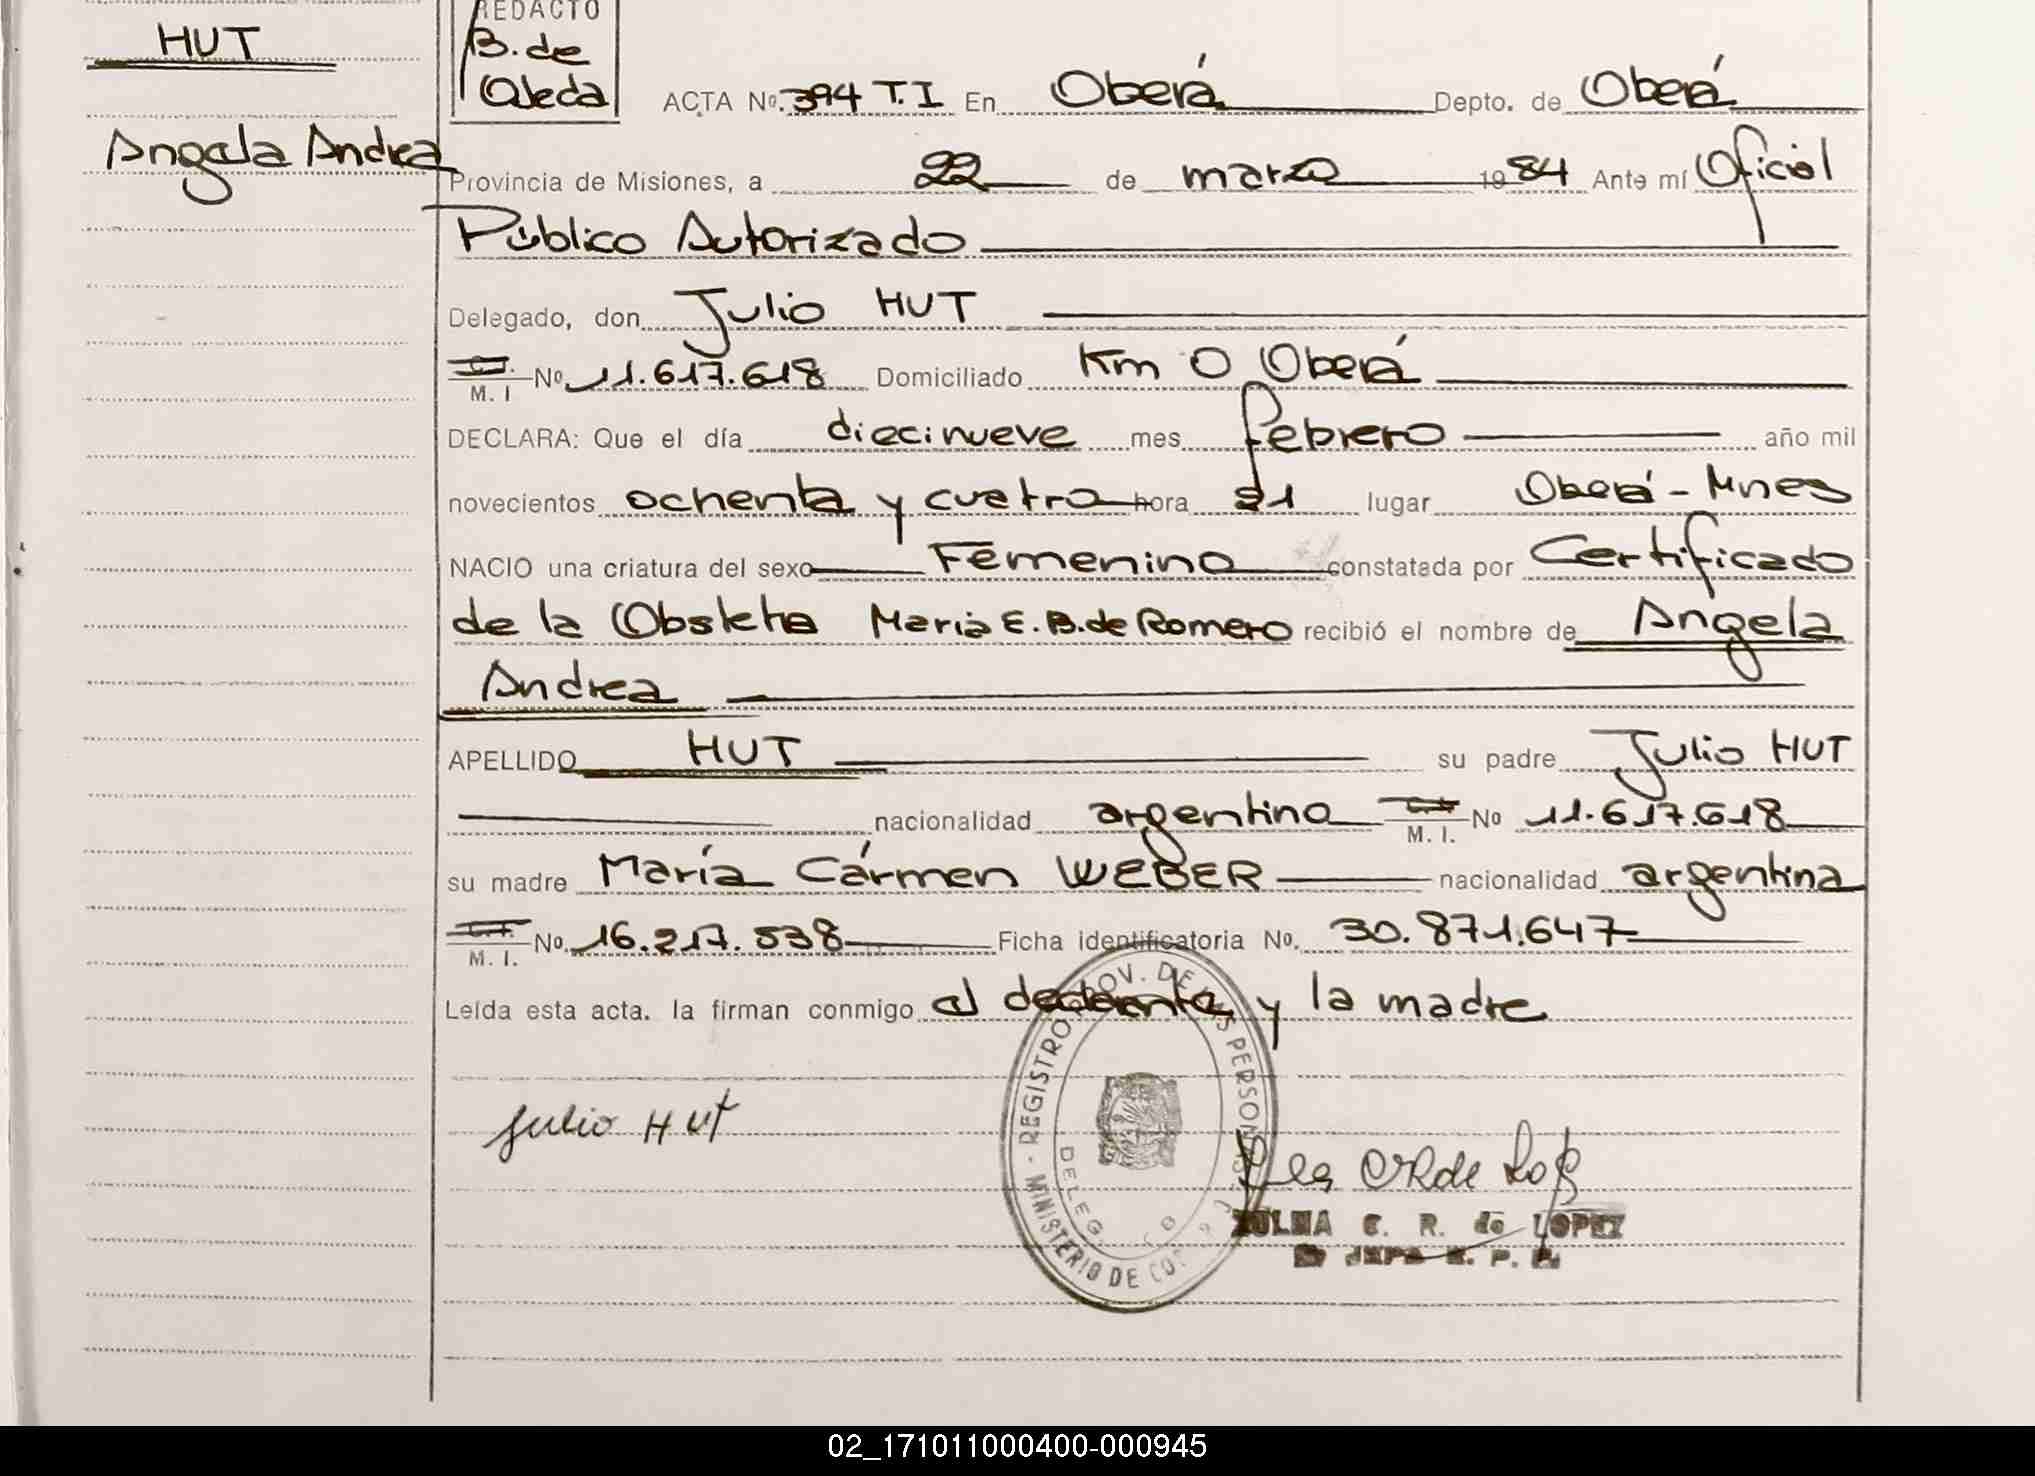 HUT
Angela Andrea
REDACTO
B. de
Ojeda
ACTA No. 394 T.I En Oberá Depto. de Oberá
Provincia de Misiones, a 22 de marzo 1984 Ante mí Oficial
Público Autorizado
Delegado, don Julio HUT
M. I No 11.617.618 Domiciliado Km 0 Oberá
DECLARA: Que el día diecinueve mes febrero año mil
novecientos ochenta y cuatro hora 21 lugar Oberá - Mnes
NACIO una criatura del sexo Femenino constatada por Certificado
de la Obstetra Maria E. B. de Romero recibió el nombre de Angela
Andrea
APELLIDO HUT su padre Julio HUT
nacionalidad argentino M. I. No 11.617.618
su madre María Cármen WEBER nacionalidad argentina
M. I. No. 16.217.538 Ficha identificatoria No. 30.871.647
Leída esta acta. la firman conmigo el declarante y la madre
Julio Hut
REGISTRO PROV. DE LAS PERSONAS
MINISTERIO DE
DELEG.
ZULMA E. R. de LOPEZ
02_171011000400-000945